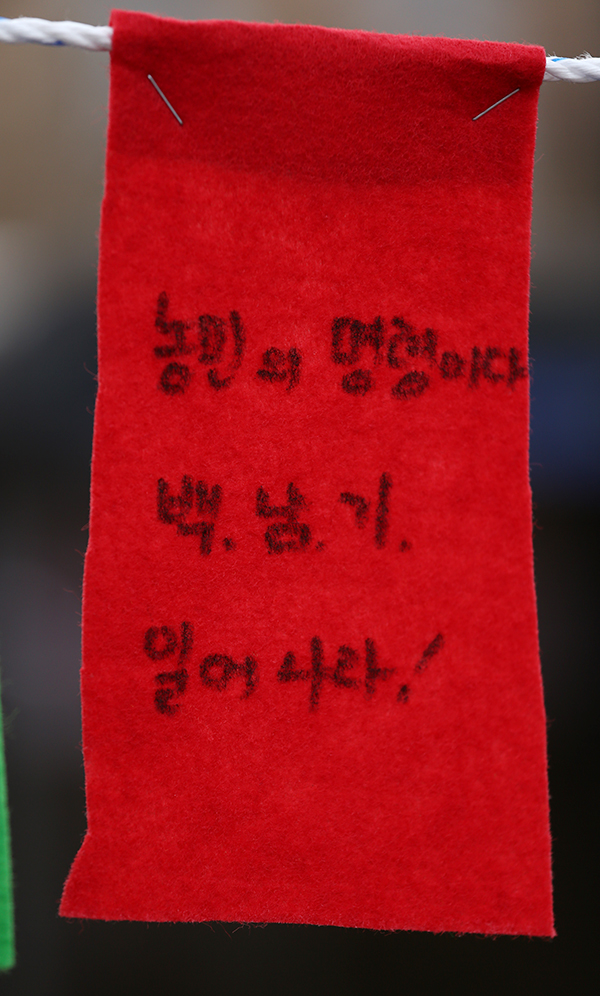 농민의 명령이다
백.남.기.
일어나라!